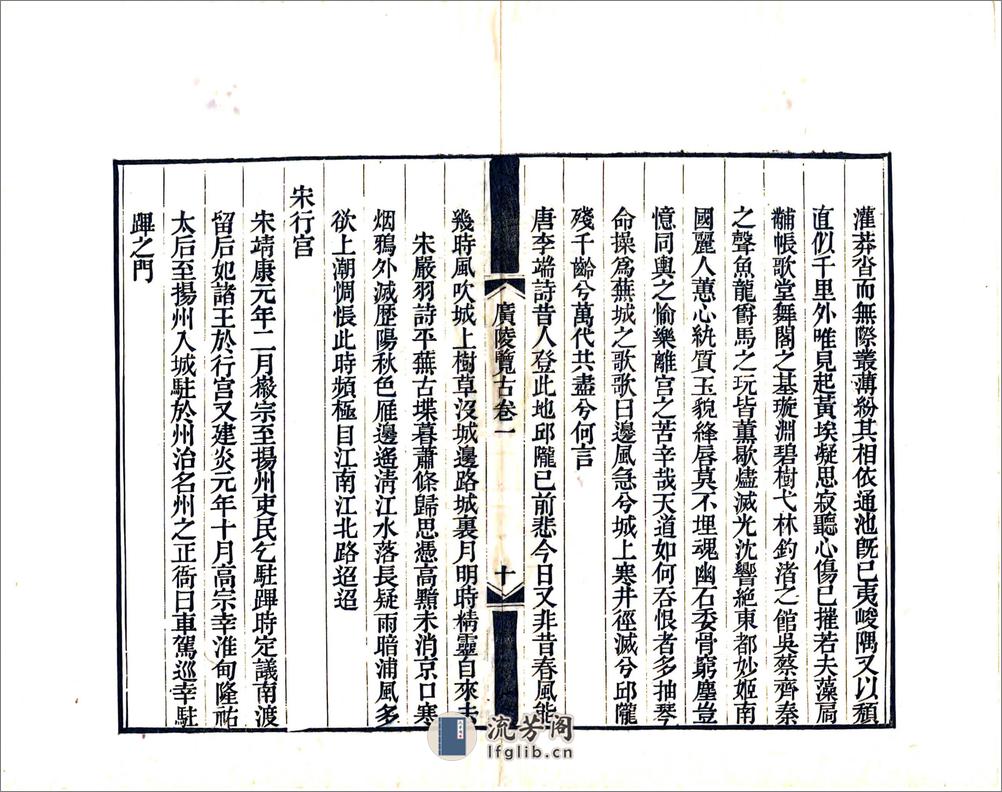 灌莽杳而無際叢薄紛其相依通池旣已夷峻隅又以頹
直似千里外唯見起黃埃凝思寂聽心傷已摧若夫藻扃
黼帳歌堂舞閣之基璇淵碧樹弋林釣渚之館吳蔡齊秦
之聲魚龍爵馬之玩皆薰歇燼滅光沈響絕東都妙姬南
國麗人蕙心紈質玉貌絳唇莫不埋魂幽石委骨窮塵豈
憶同輿之愉樂離宮之苦辛哉天道如何吞恨者多抽琴
命操爲蕪城之歌歌曰邊風急兮城上寒井徑滅兮邱隴
殘千齡兮萬代共盡兮何言
唐李端詩昔人登此地邱隴已前悲今日又非昔春風能
廣陵覽古卷一
十
幾時風吹城上樹草沒城邊路城裏月明時精靈自來去
宋嚴羽詩平蕪古堞暮蕭條歸思憑高黯未消京口寒
烟鴉外滅歷陽秋色雁邊遙淸江水落長疑雨暗浦風多
欲上潮惆悵此時頻極目江南江北路迢迢
宋行宮
宋靖康元年二月徽宗至揚州吏民乞駐蹕時定議南渡
留后妃諸王於行宮又建炎元年十月高宗幸淮甸隆祐
太后至揚州入城駐於州治名州之正衙曰車駕巡幸駐
蹕之門
流芳阁
lfglib.cn